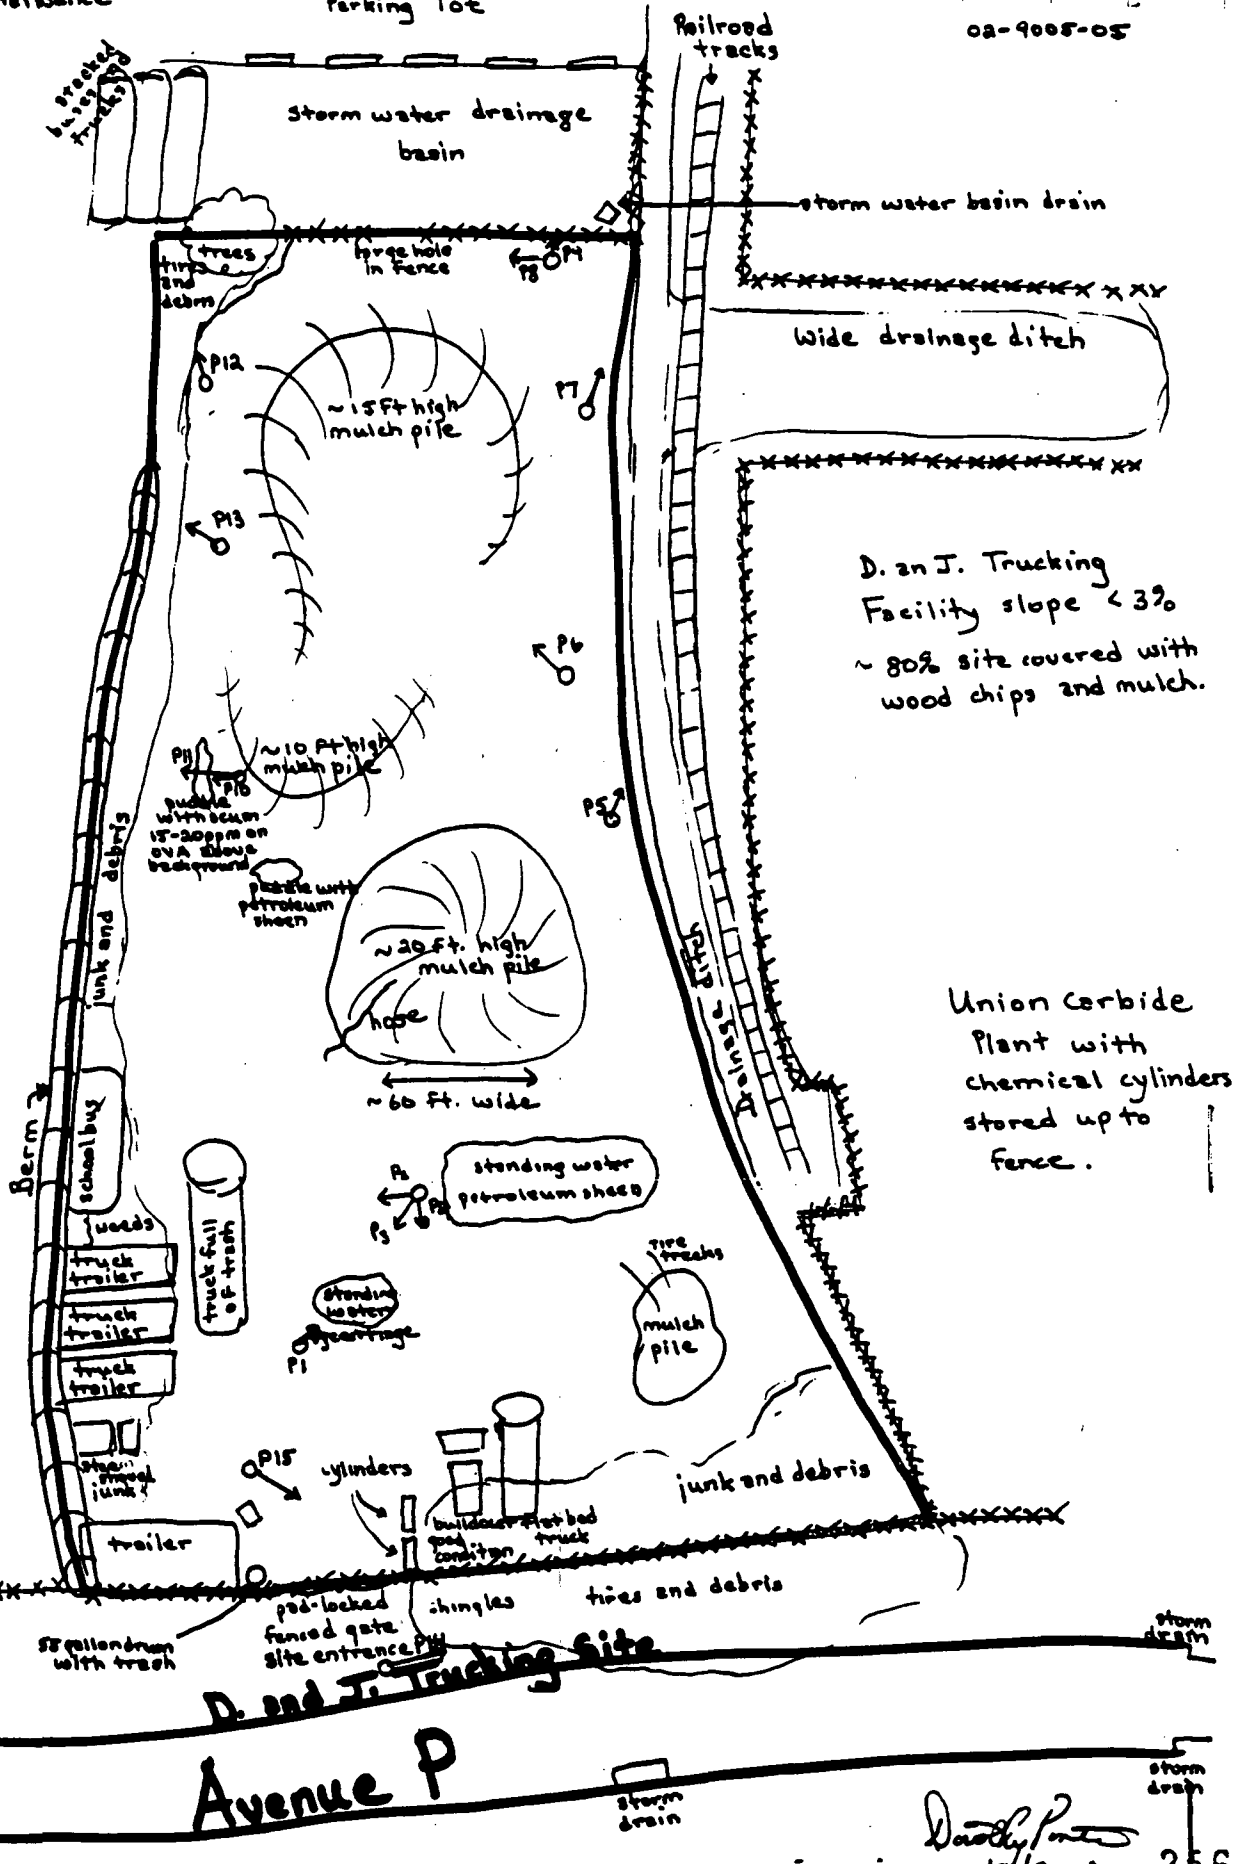 Parking lot
Railroad
tracks
02-9005-05
stacked
buses and
trucks
storm water drainage
basin
storm water basin drain
trees
tires
and
debris
large hole
in fence
P8
P4
Wide drainage ditch
P12
P7
~15 ft high
mulch pile
P13
D. an J. Trucking
Facility slope < 3%
~ 80% site covered with
wood chips and mulch.
P6
P11
P10
~10 ft high
mulch pile
puddle
with scum
15-20ppm on
OVA above
background
P5
junk and debris
puddle with
petroleum
sheen
~20 ft. high
mulch pile
hose
Drainage ditch
~60 ft. wide
Union Carbide
Plant with
chemical cylinders
stored up to
fence.
Berm
school bus
weeds
truck full
of trash
standing water
petroleum sheen
P2
P3
truck
trailer
truck
trailer
truck
trailer
standing
water
P1
tire
tracks
mulch
pile
junk
P15
cylinders
junk and debris
trailer
bulldozer
good
condition
flat bed
truck
55 gallon drum
with trash
pad-locked
fenced gate
site entrance
P14
shingles
tires and debris
storm
drain
D. and J. Trucking Site
Avenue P
storm
drain
storm
drain